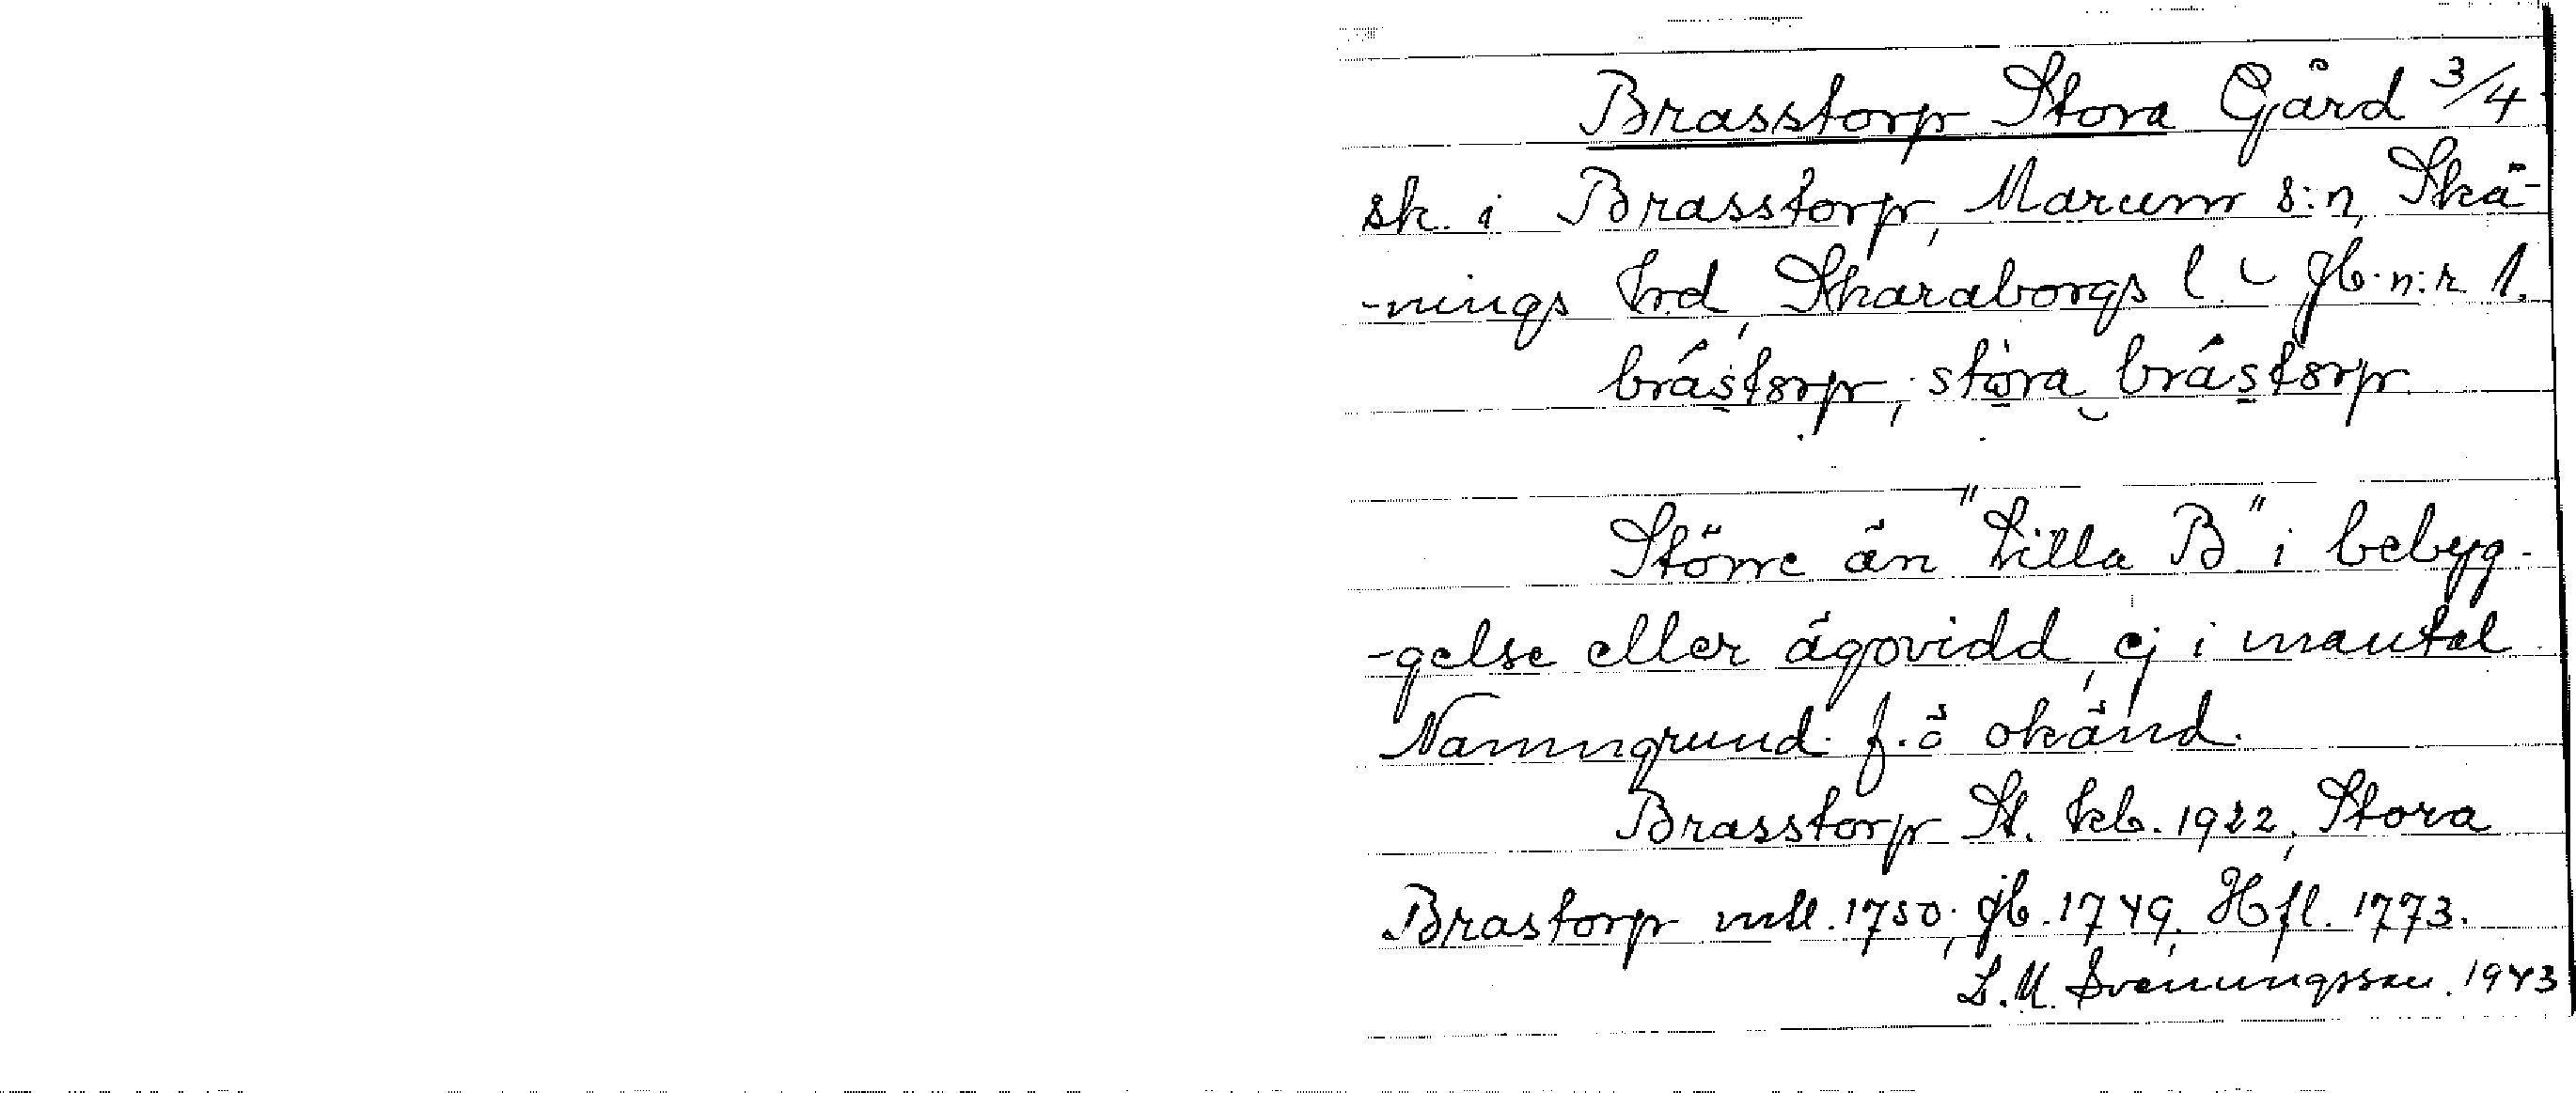 Brasstorp Stora Gård 3/4
sk. i Brasstorp, Marum s:n, Skä-
-nings hrd, Skaraborgs l. gb. n:r 1.
brástorp, stora brástorp
Större än "Lilla B" i bebyg-
-gelse eller ägovidd, ej i mantal.
Namngrund f.ö okänd.
Brasstorp St. kb. 1922, Stora
Brastorp mtl. 1750, jb. 1749, Hfl. 1773.
L. M. Svenungsson. 1943